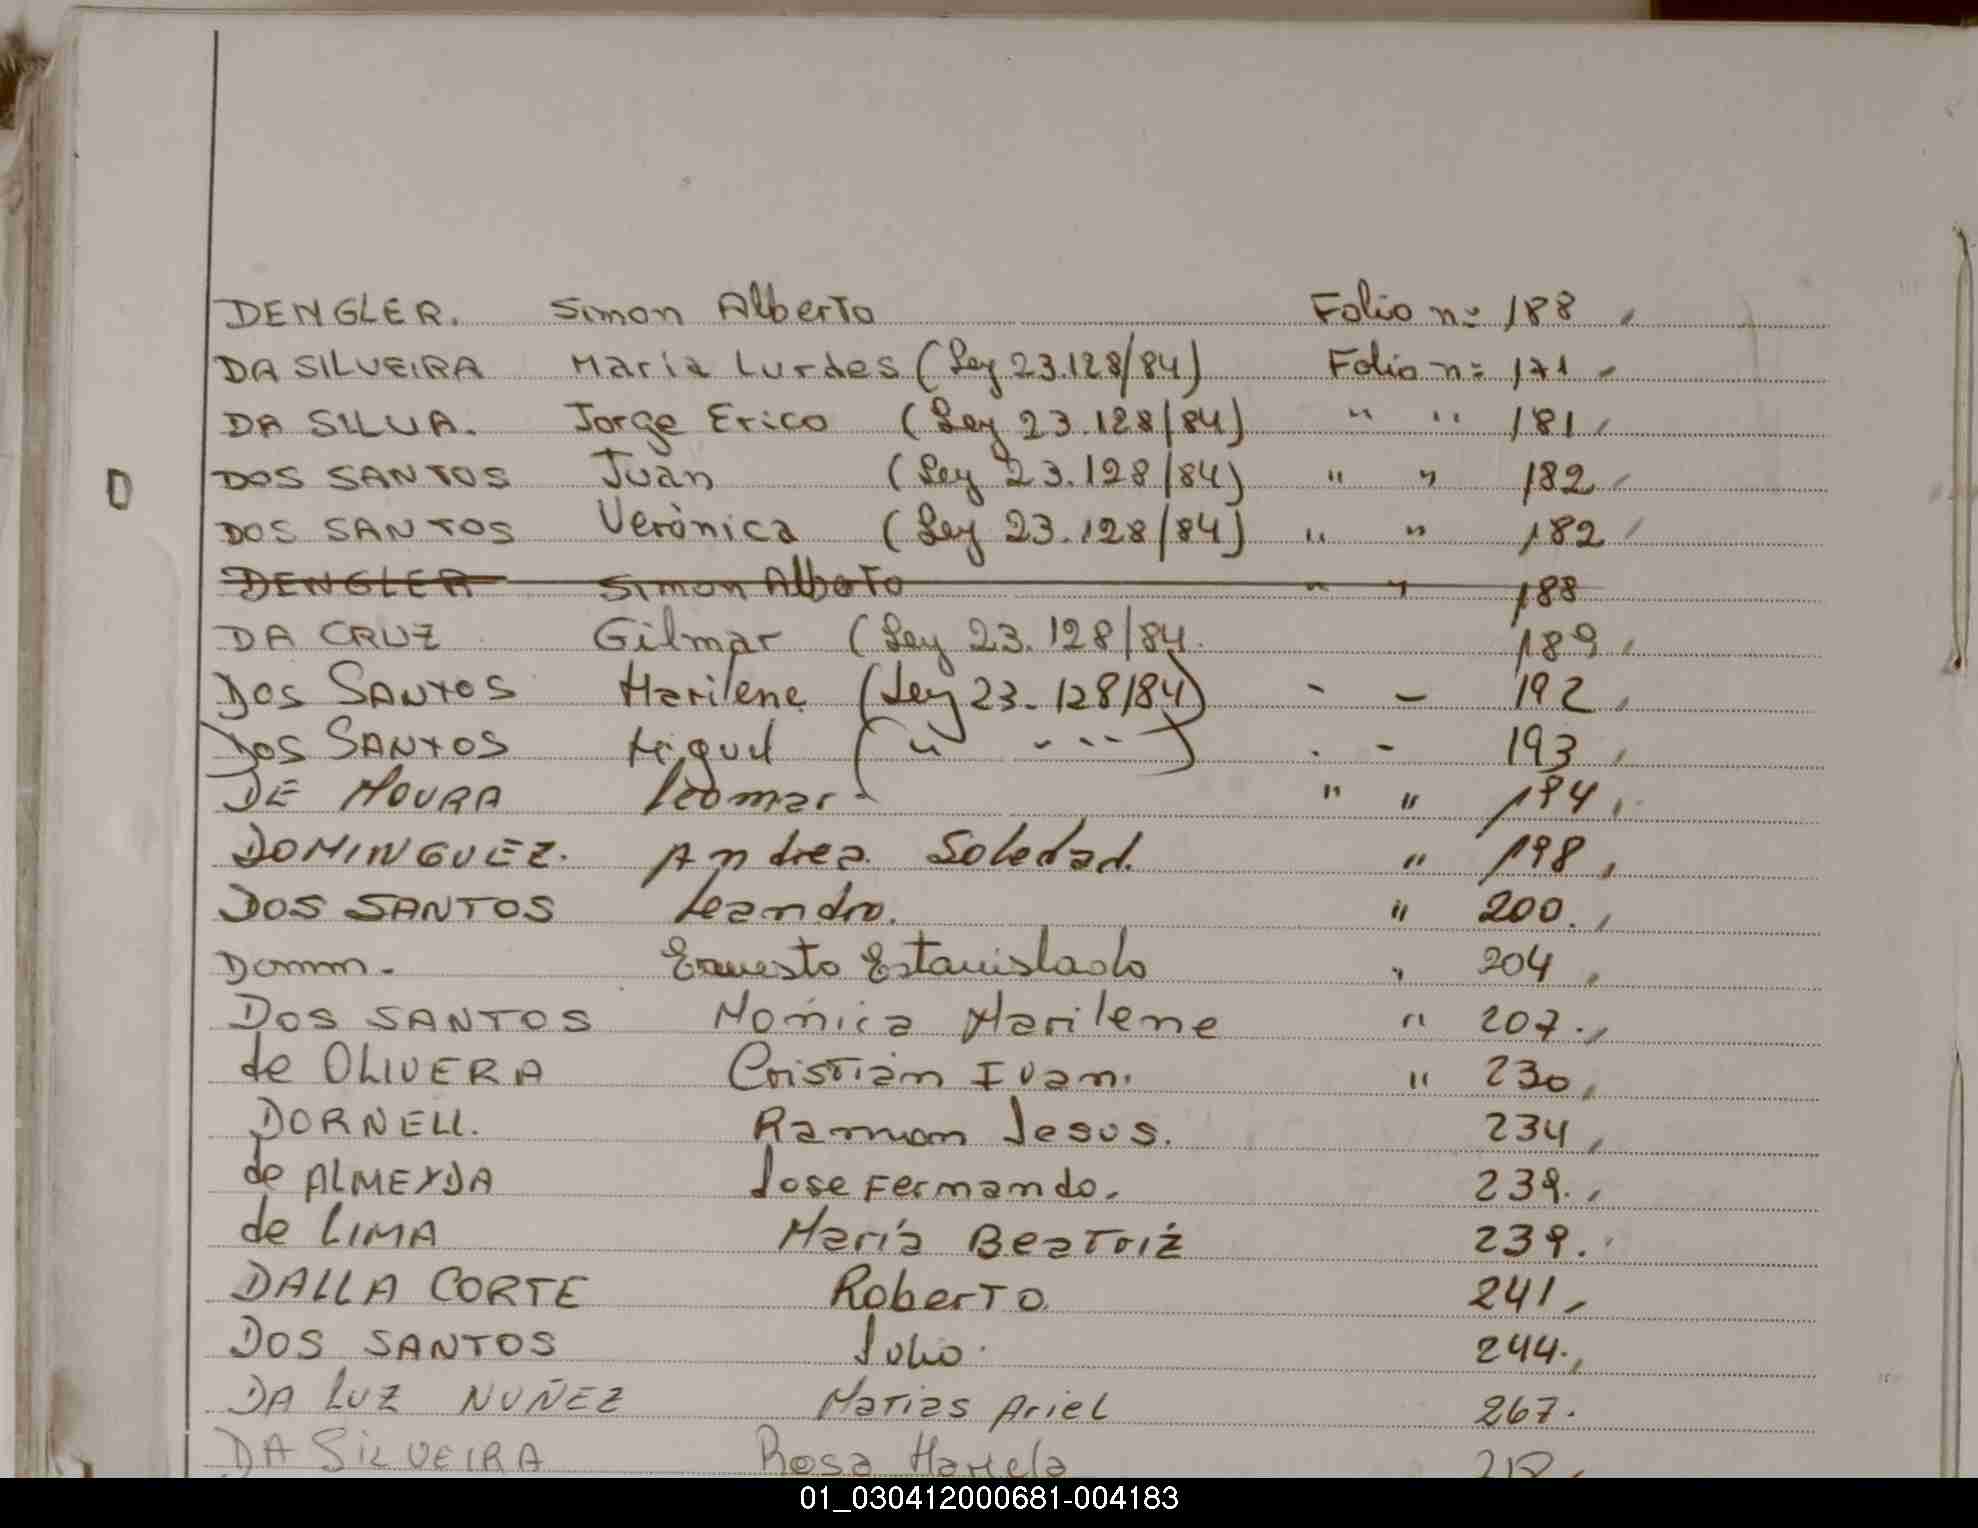 DENGLER. Simon Alberto Folio n= 188
DA SILVEIRA Maria Lurdes (Ley 23.128/84) Folio n= 171
DA SILVA. Jorge Erico (Ley 23.128/84) " " 181
D
DOS SANTOS Juan (Ley 23.128/84) " " 182
DOS SANTOS Verónica (Ley 23.128/84) " " 182
DENGLER Simon Alberto " " 188
DA CRUZ Gilmar (Ley 23.128/84. 189
Dos SANTOS Marilene (Ley 23-128/84) - - 192
Dos SANTOS Miguel ( " - - - - ) . - 193
DE MOURA Leomar - " " 194
DOMINGUEZ. Andrea Soledad. " 198
DOS SANTOS Leandro. " 200.
Damm. Ernesto Estanislado " 204
DOS SANTOS Mónica Marilene " 207.
de OLIVERA Cristián Ivan. " 230
DORNELL. Ramon Jesus. 234
de ALMEYDA Jose Fernando. 239.
de LIMA María Beatriz 239.
DALLA CORTE Roberto. 241
DOS SANTOS Julio. 244.
DA LUZ NUÑEZ Matias Ariel 267.
DA SILVEIRA Rosa Mariela
01_030412000681-004183